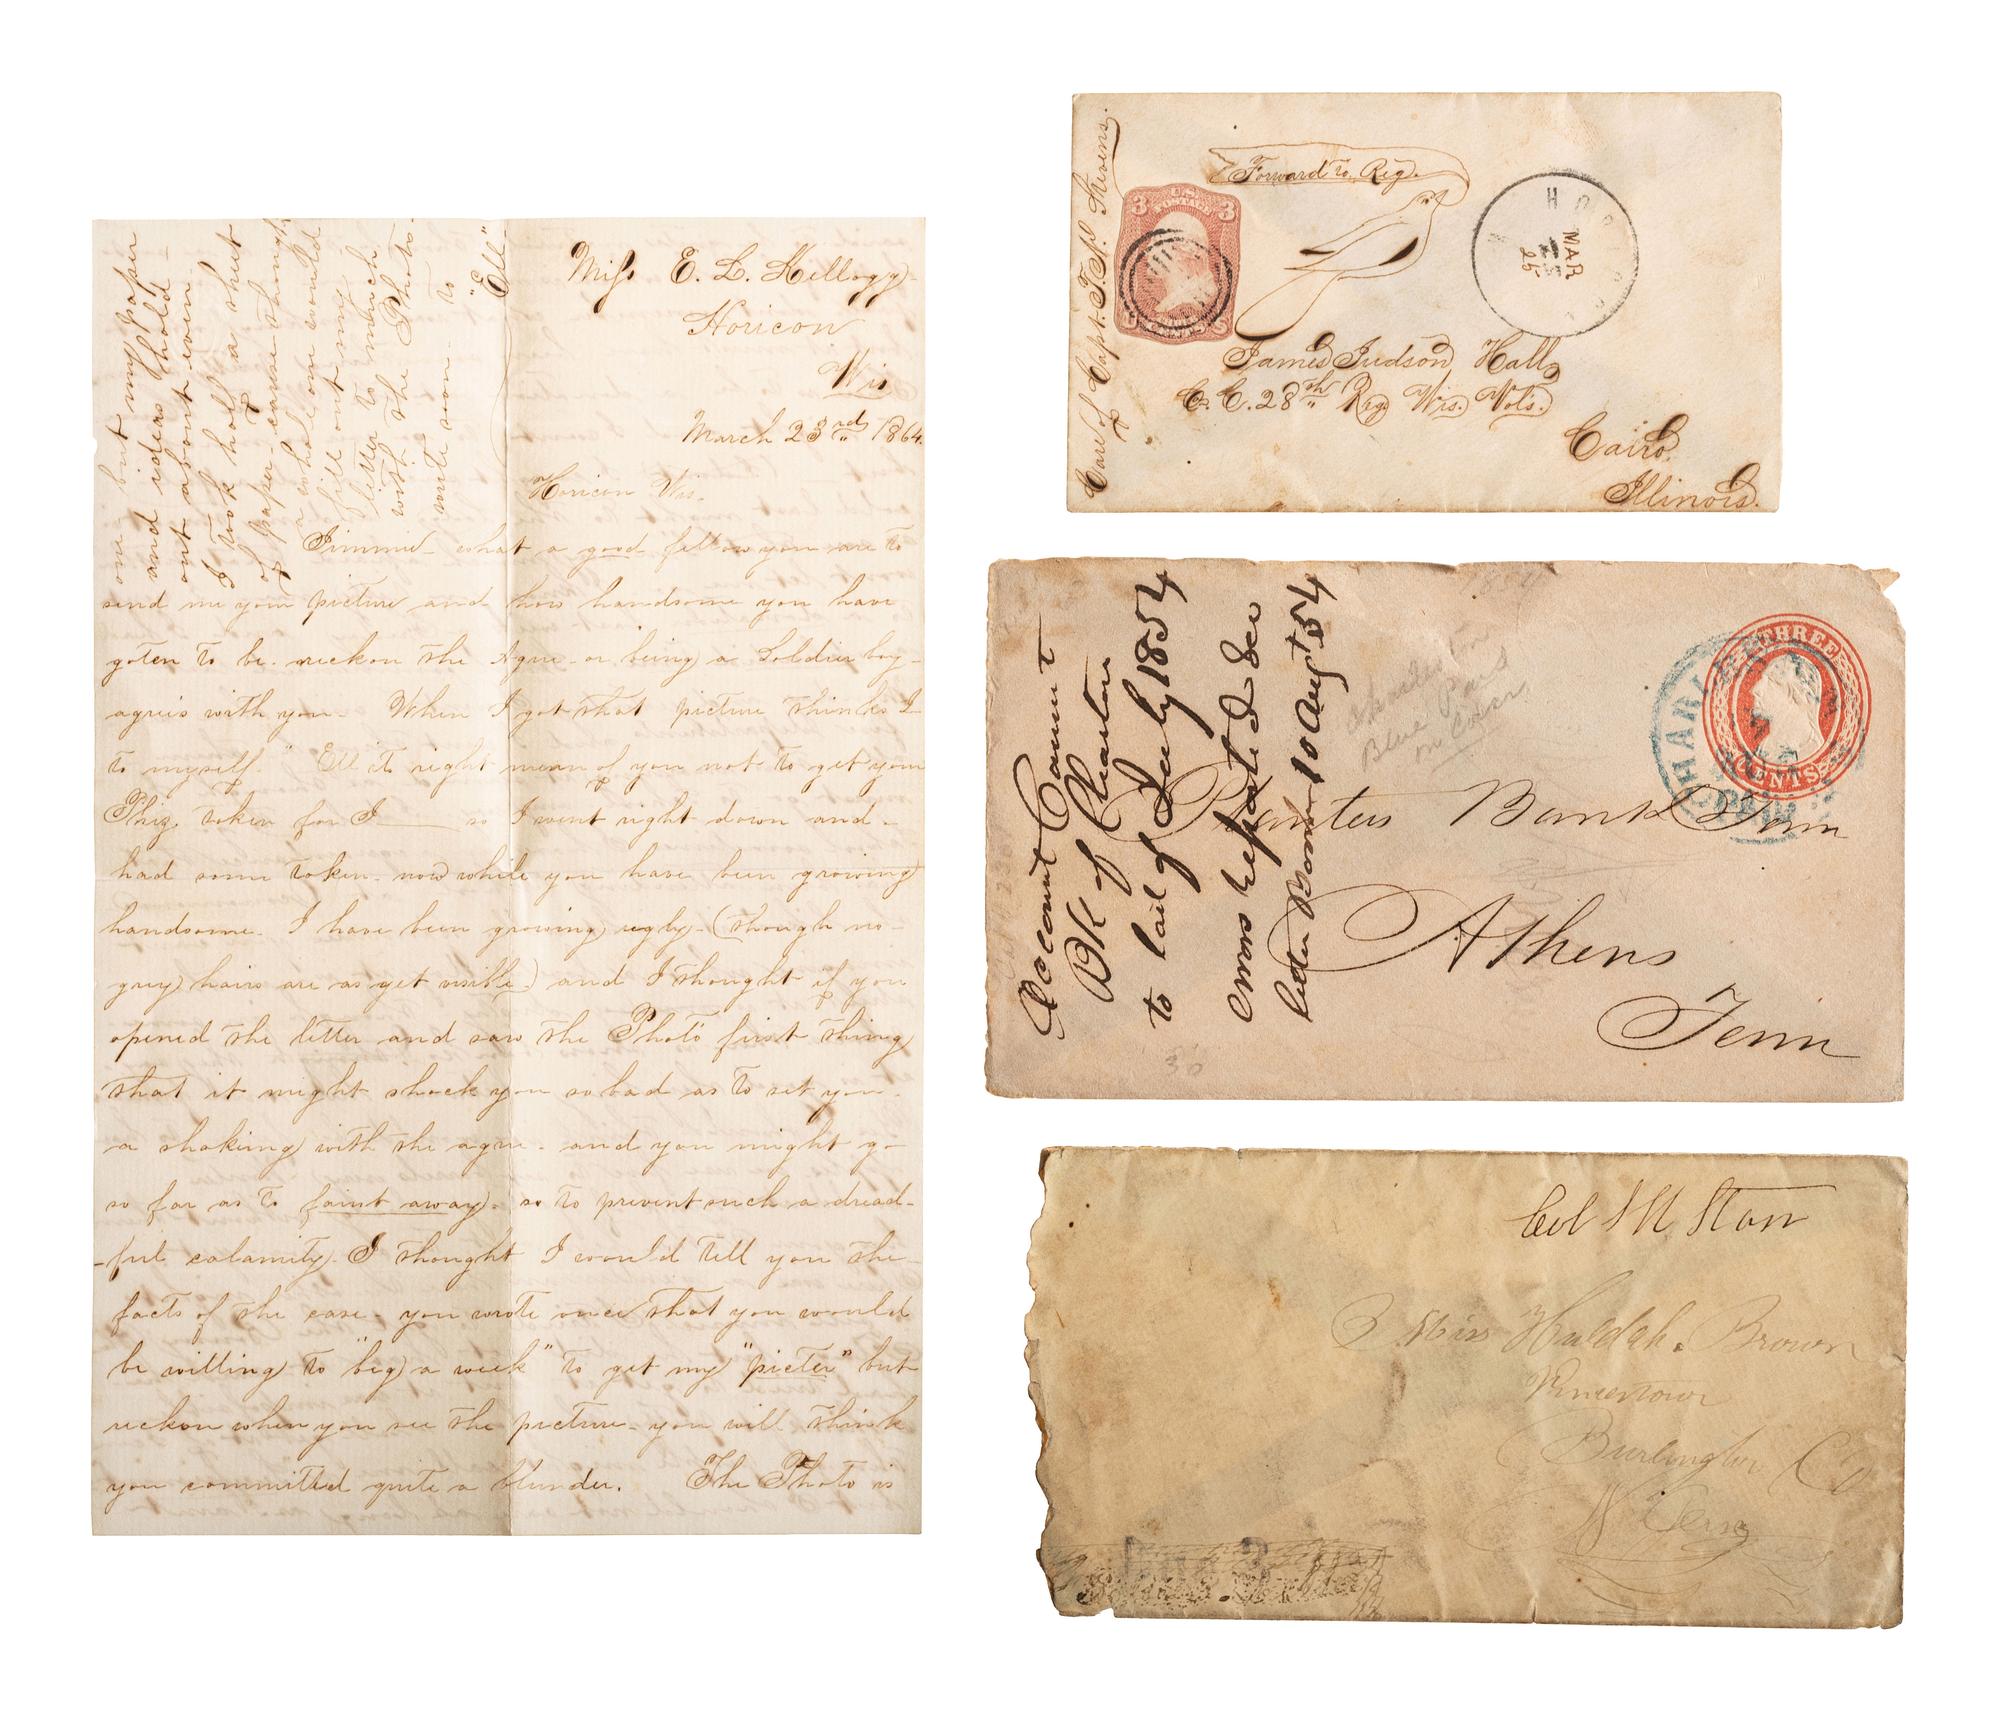 Miss E. L. Kellogg
Horicon
Wis
March 23rd 1864.
Horicon Wis.
Jimmie what a good fellow you are to
send me your picture and how handsome you have
goten to be. reckon the Ague - or being a Soldier boy -
agrees with you - When I got that picture thinks I
to myself. "Ell it right mean of you not to get your
Phiz. token for J so I went right down and -
had some token. now while you have been growing
handsome. I have been growing ugly - (though no -
grey hairs are as yet visible) and I thought if you
opened the letter and saw the Photo first thing
that it might shock you so bad as to set you
a shaking with the ague - and you might go
so far as to faint away - so to prevent such a dread-
-ful calamity. I thought I would tell you the
facts of the case - you wrote once that you would
be willing to "beg a week" to get my "picter" but
reckon when you see the picture - you will think
you committed quite a blunder. The Photo is
one but my paper
and ideas hold -
out about even.
I took half a shut
of paper - cause thought
a whole one would
fill out my
letter to much
with the Photo -
write soon - to
"Ell"
Care of Capt. T. S. Stevens.
Forward to Reg.
U.S.
POSTAGE
3 3
CENTS
HORICON
MAR
25
James Judson Hall
C. C. 28th Reg Wis. Vols.
Cairo.
Illinois.
Account Current
BK of Charston
to last of July 1854
errors reported see
letter Bank 10 Augt 54
1854
Charleston
Blue Paid
on Cover
THREE
CENTS
CHARLESTON
PAID
Planters Bank Tenn
Athens
Tenn
30
Col
Miss Huldah. Brown
Vincentown
Burlington Co
N Jersey